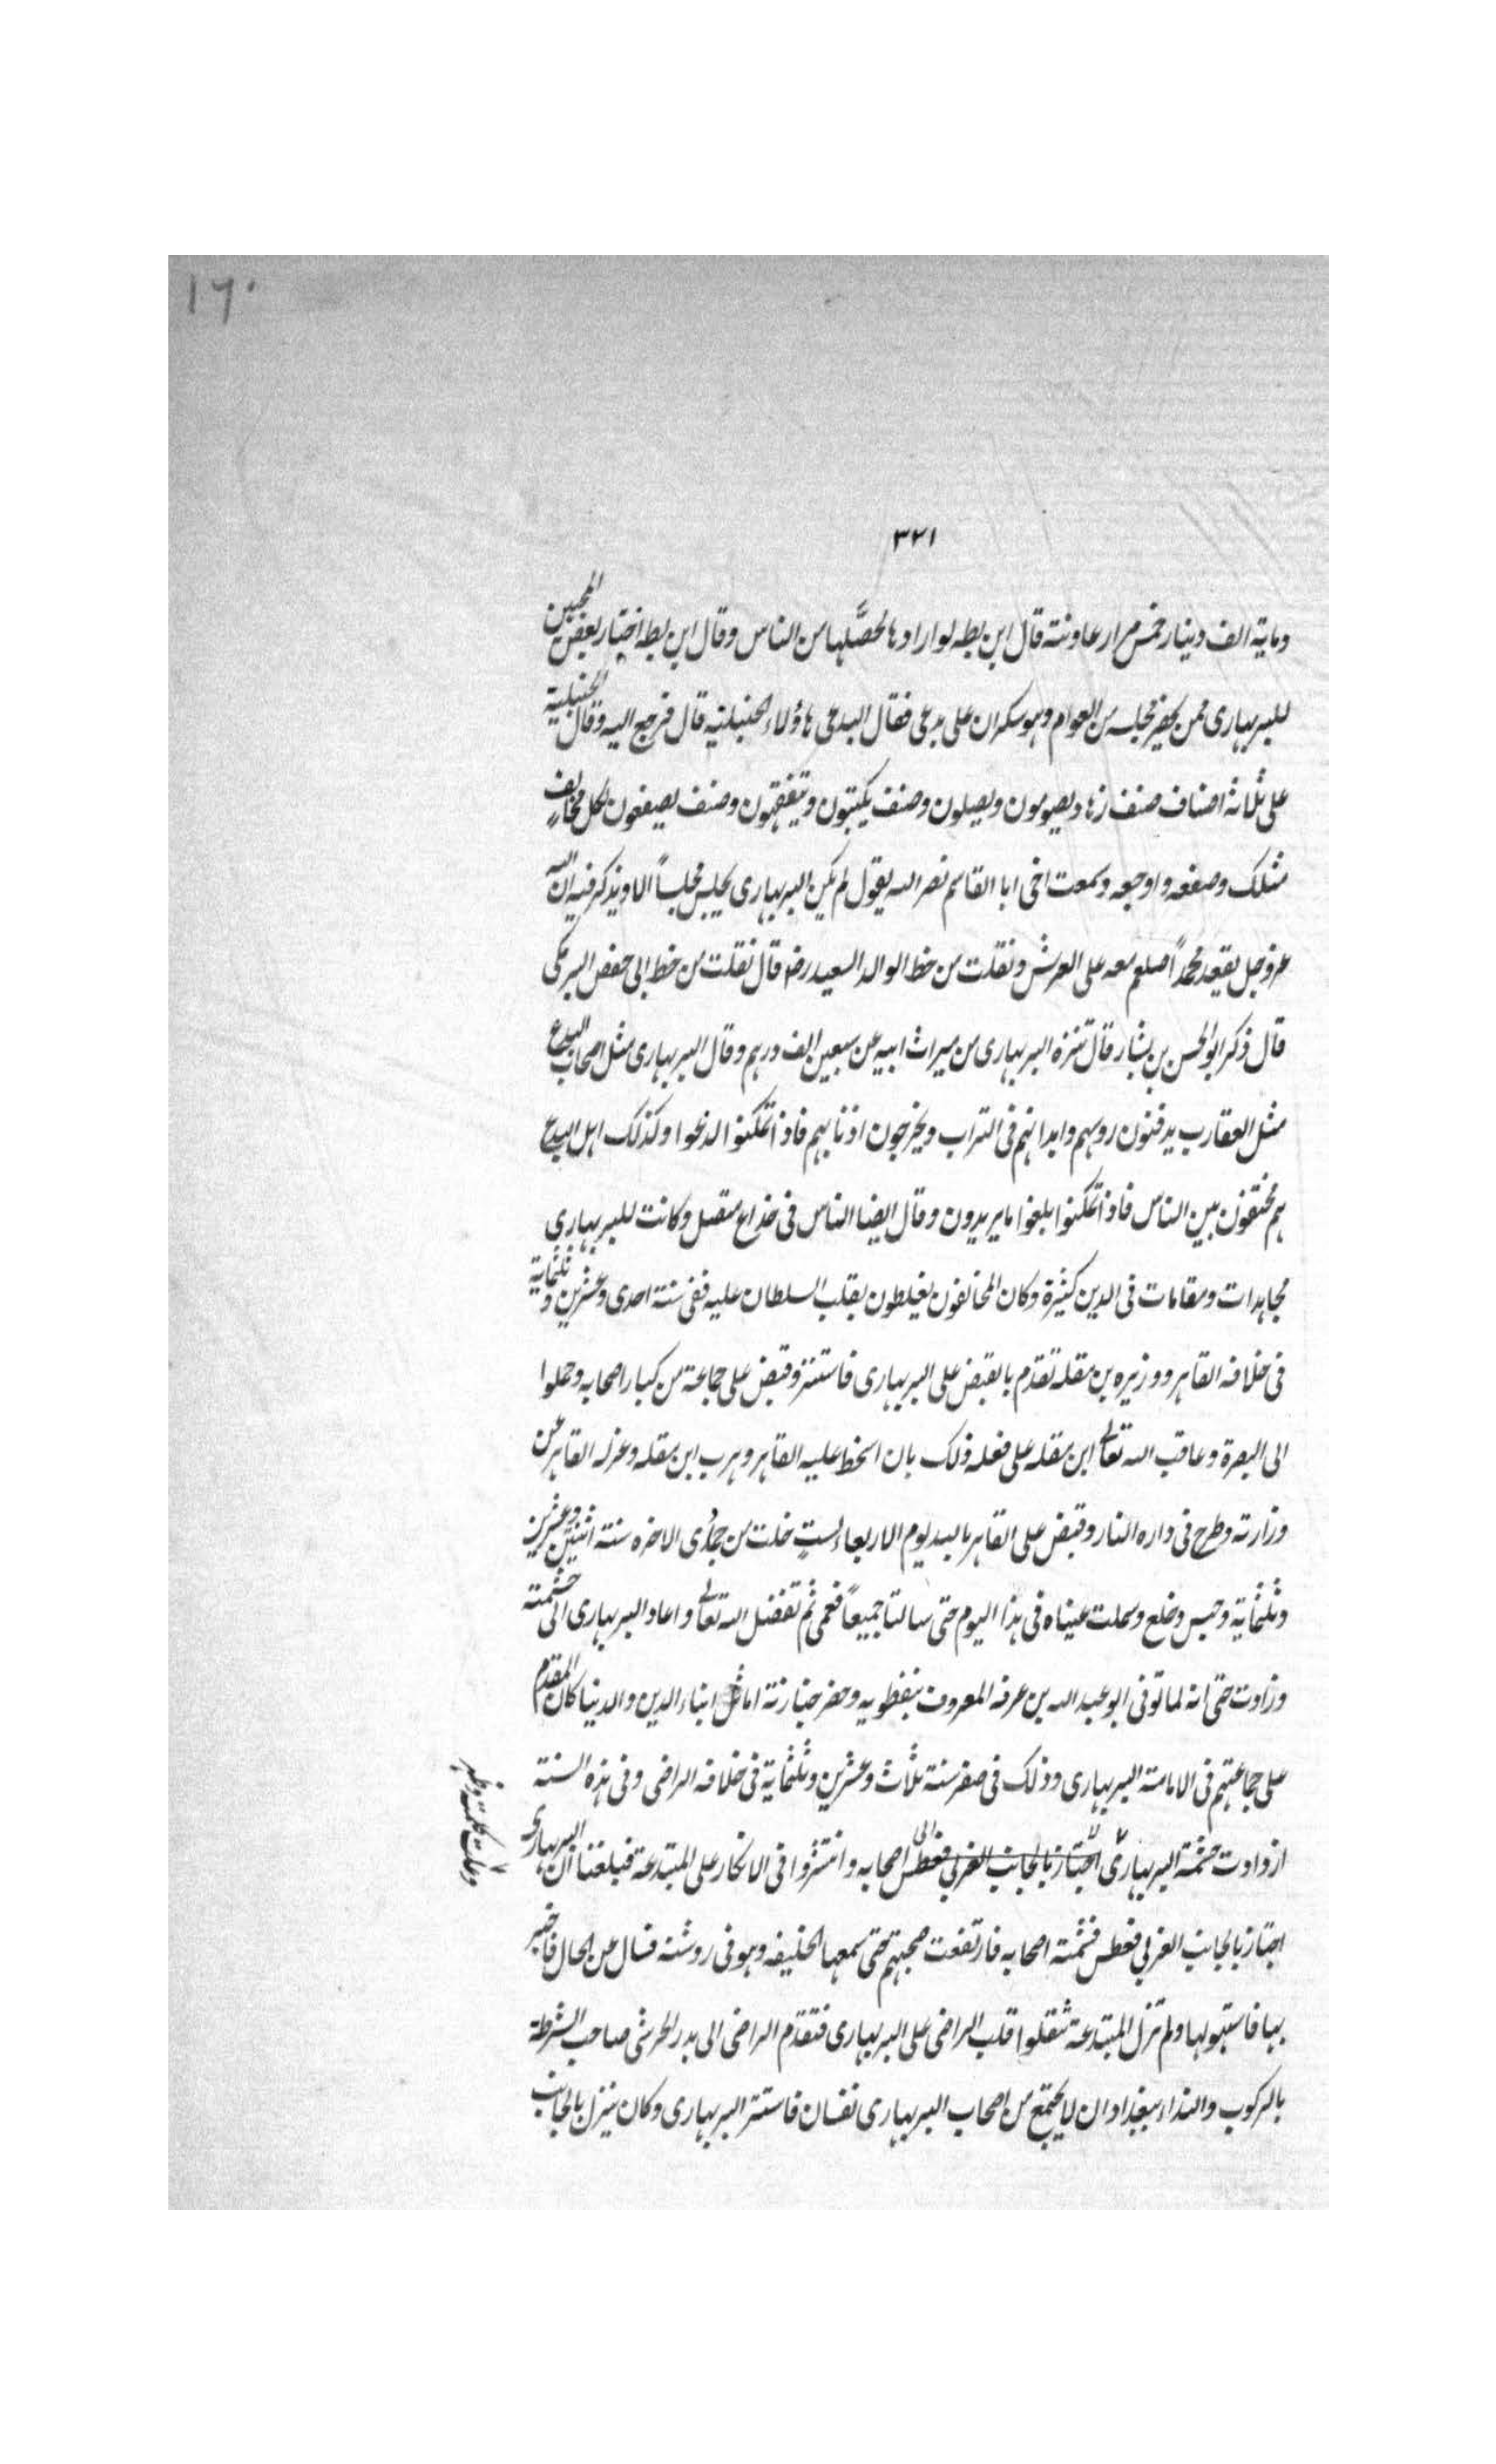 ١٦٠
٣٢١
وماية الف دينار خمس مرار عاونته قال ابن بطه لو ارادها لحصّلها من الناس وقال ابن بطه اجتاز بعض المحبين
للبربهارى ممن يحضر مجلسه من العوام وهو سكران على بدعى فقال البدعى هاؤلاء الحنبلية قال فرجع اليه وقال الحنبلية
على ثلاثة اصناف صنف زهاد يصومون ويصلون وصنف يكتبون ويتفقهون وصنف يصفعون لكل مخالف
مثلك وصفعه واوجعه وسمعت اخى ابا القاسم نصر الله يقول لم يكن البربهارى يجلس مجلساً الا ويذكر فيه ان الله
عز وجل يقعد محمداً صلعم معه على العرش ونقلت من خط الوالد السعيد رضه قال نقلت من خط ابى حفص البرمكى
قال ذكر ابو الحسن بن بشار قال تنزه البربهارى من ميراث ابيه عن سبعين الف درهم وقال البربهارى مثل اصحاب البدع
مثل العقارب يدفنون روسهم وابدانهم فى التراب ويخرجون اذنابهم فاذا تمكنوا لدغوا وكذلك اهل البدع
هم مختفون بين الناس فاذا تمكنوا بلغوا ما يريدون وقال ايضا الناس فى خداع متصل وكانت للبربهارى
مجاهدات ومقامات فى الدين كثيرة وكان المخالفون يغلظون بقلب السلطان عليه ففى سنة احدى وعشرين وثلثماية
فى خلافه القاهر ووزيره بن مقله تقدم بالقبض على البربهارى فاستتر وقبض على جماعة من كبار اصحابه وحملوا
الى البصرة وعاقب الله تعالى ابن مقله على فعله ذلك بان اسخط عليه القاهر وهرب ابن مقله وعزله القاهر عن
وزارته وطرح فى داره النار وقبض على القاهر بالله يوم الاربعاء لستٍ خلت من جمادى الاخره سنة اثنين وعشرين
وثلثماية وحبس وخلع وسملت عيناه فى هذا اليوم حتى سالتا جميعاً فعمى ثم تفضل الله تعالى واعاد البربهارى الى حشمته
وزادت حتى انه لما توفى ابو عبد الله بن عرفه المعروف بنفطويه وحضر جنازته اماثل ابناء الدين والدنيا كان المقدم
على جماعتهم فى الامامة البربهارى وذلك فى صفر سنة ثلاث وعشرين وثلثماية فى خلافه الراضى وفى هذه السنة
ازدادت حشمة البربهارى اجتاز بالجانب الغربى فعطس اصحابه وانتشروا فى الانكار على المبتدعة فبلغنا ان البربهارى
وعلت كلمته وظهر
اجتاز بالجانب الغربى فعطس فشمته اصحابه فارتفعت ضجتهم حتى سمعها الخليفه وهو فى روشنه فسال عن الحال فاخبر
بها فاستهولها ولم تزل المبتدعة تثقلوا قلب الراضى على البربهارى فتقدم الراضى الى بدر الخرشى صاحب الشرطة
بالركوب والنداء ببغداد ان لا يجتمع من اصحاب البربهارى نفسان فاستتر البربهارى وكان ينزل بالجانب